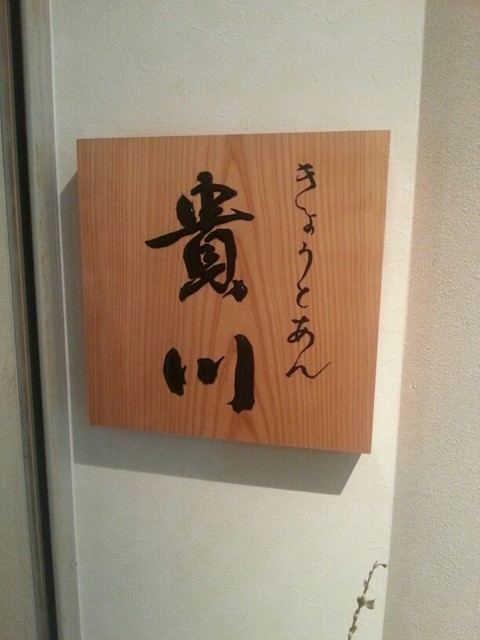 きょうとあん
貴川